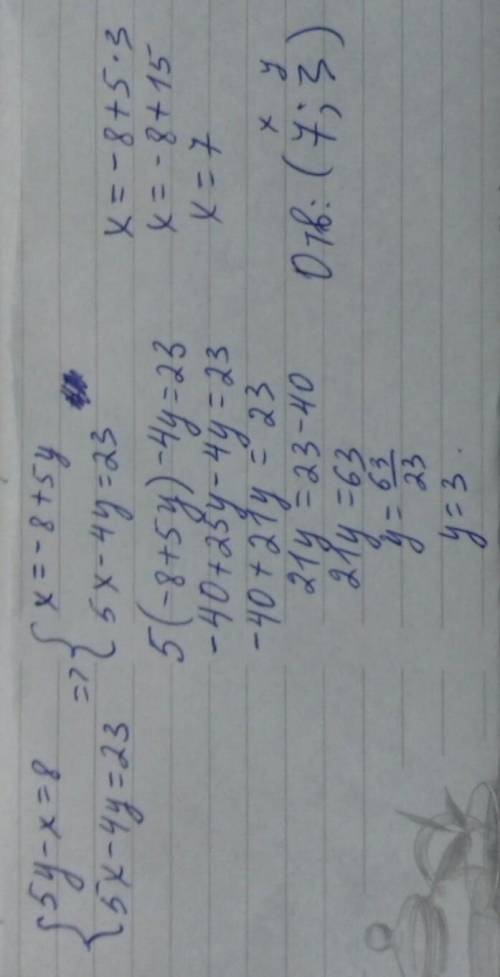 { 5y-x=8 => { x=-8+5y
{ 5x-4y=23 { 5x-4y=23
5(-8+5y)-4y=23
-40+25y-4y=23
-40+21y=23
21y=23-40
21y=63
y=63/23
y=3.
x=-8+5·3
x=-8+15
x=7
x y
Отв: (7;3)